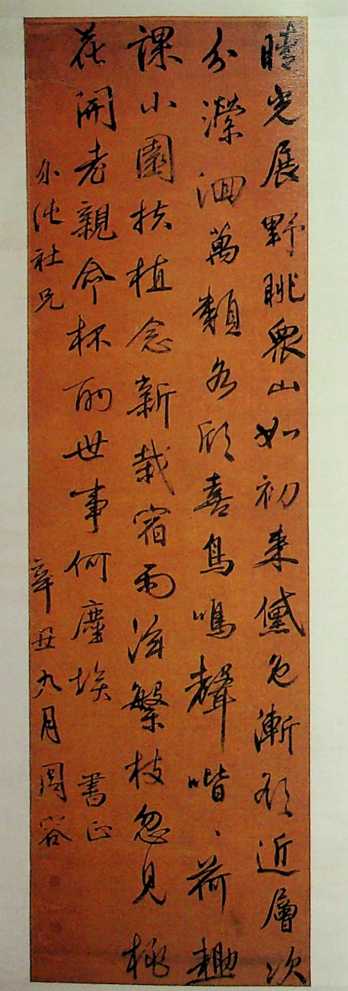 晴光展野眺眾山如初来黛色漸近層次
分瀠洄萬類各欣喜鳥鳴聲喈〻荷鋤
課小園扶植念新栽宿雨滋繁枝忽見桃
花開老親命杯酌世事何塵埃 書正
社兄 辛丑九月周容